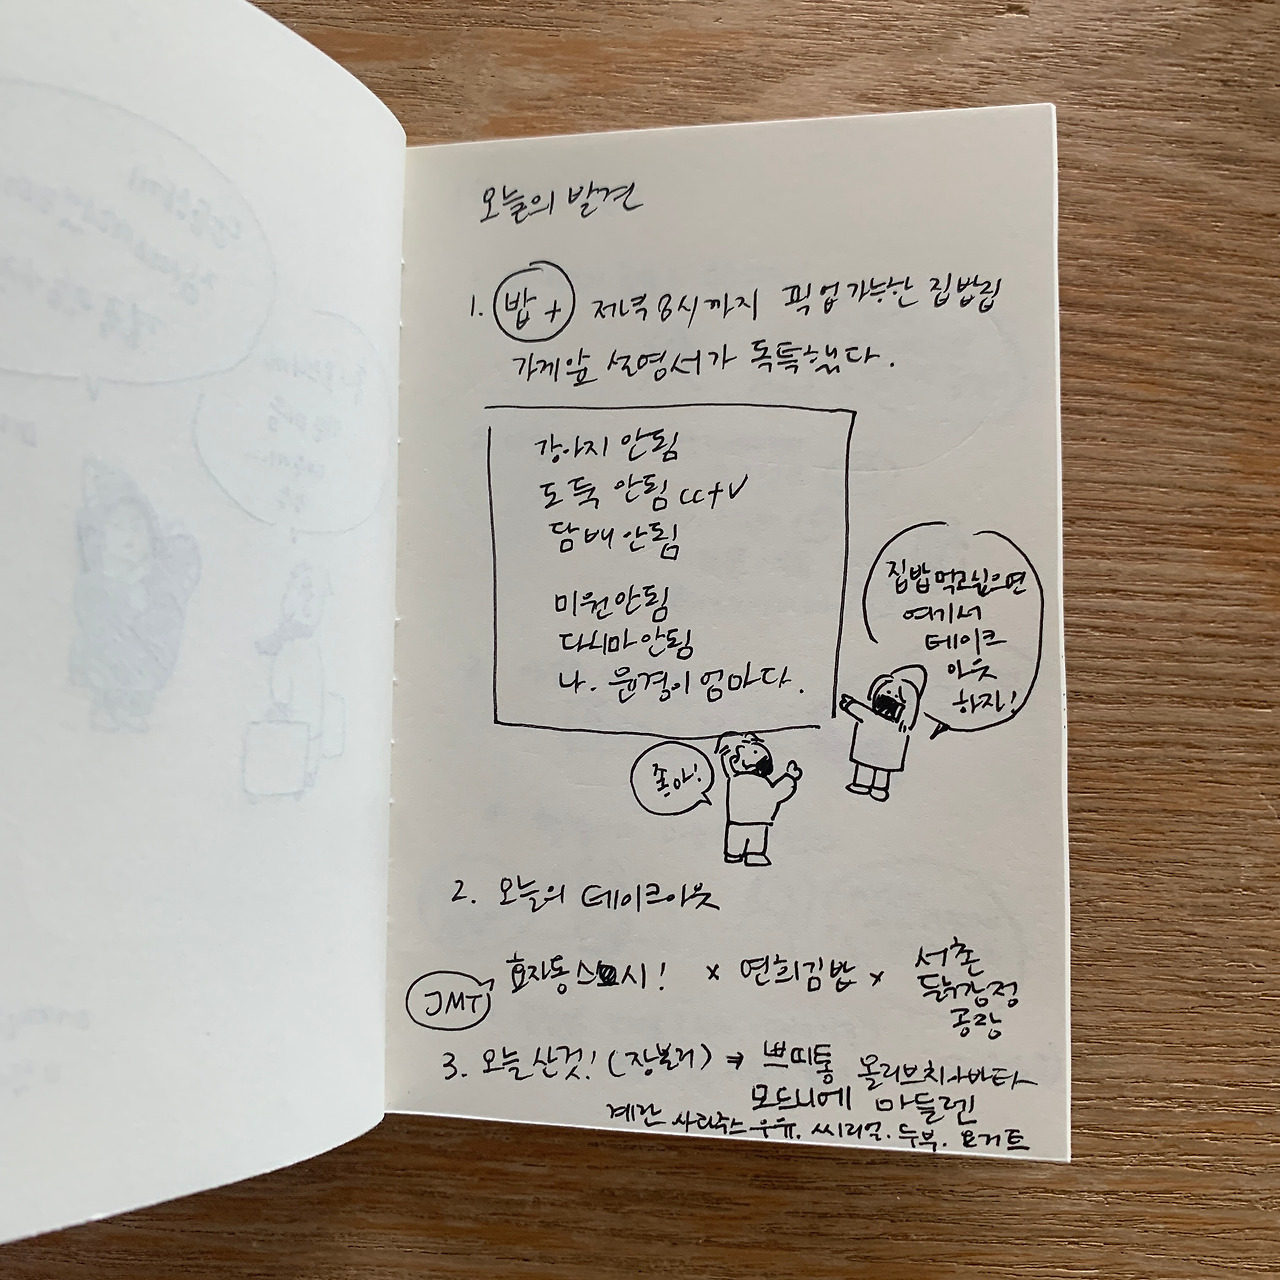 오늘의 발견
1. 밥+ 저녁 8시까지 픽업가능한 집밥집
가게앞 설명서가 독특했다.
강아지 안됨
도둑 안됨 cctv
담배 안됨
미원안됨
다시마안됨
나. 문경이 엄마다.
집밥먹고싶으면
여기서
테이크
아웃
하자!
좋아!
2. 오늘의 테이크아웃
JMT
효자동 스시! x 연희김밥 x
서촌
닭강정
공장
3. 오늘 산것! (장볼리) → 쁘띠통 올리브치아바타
모드니에 마들렌
계란 사과주스 우유. 씨리얼. 두부. 요거트